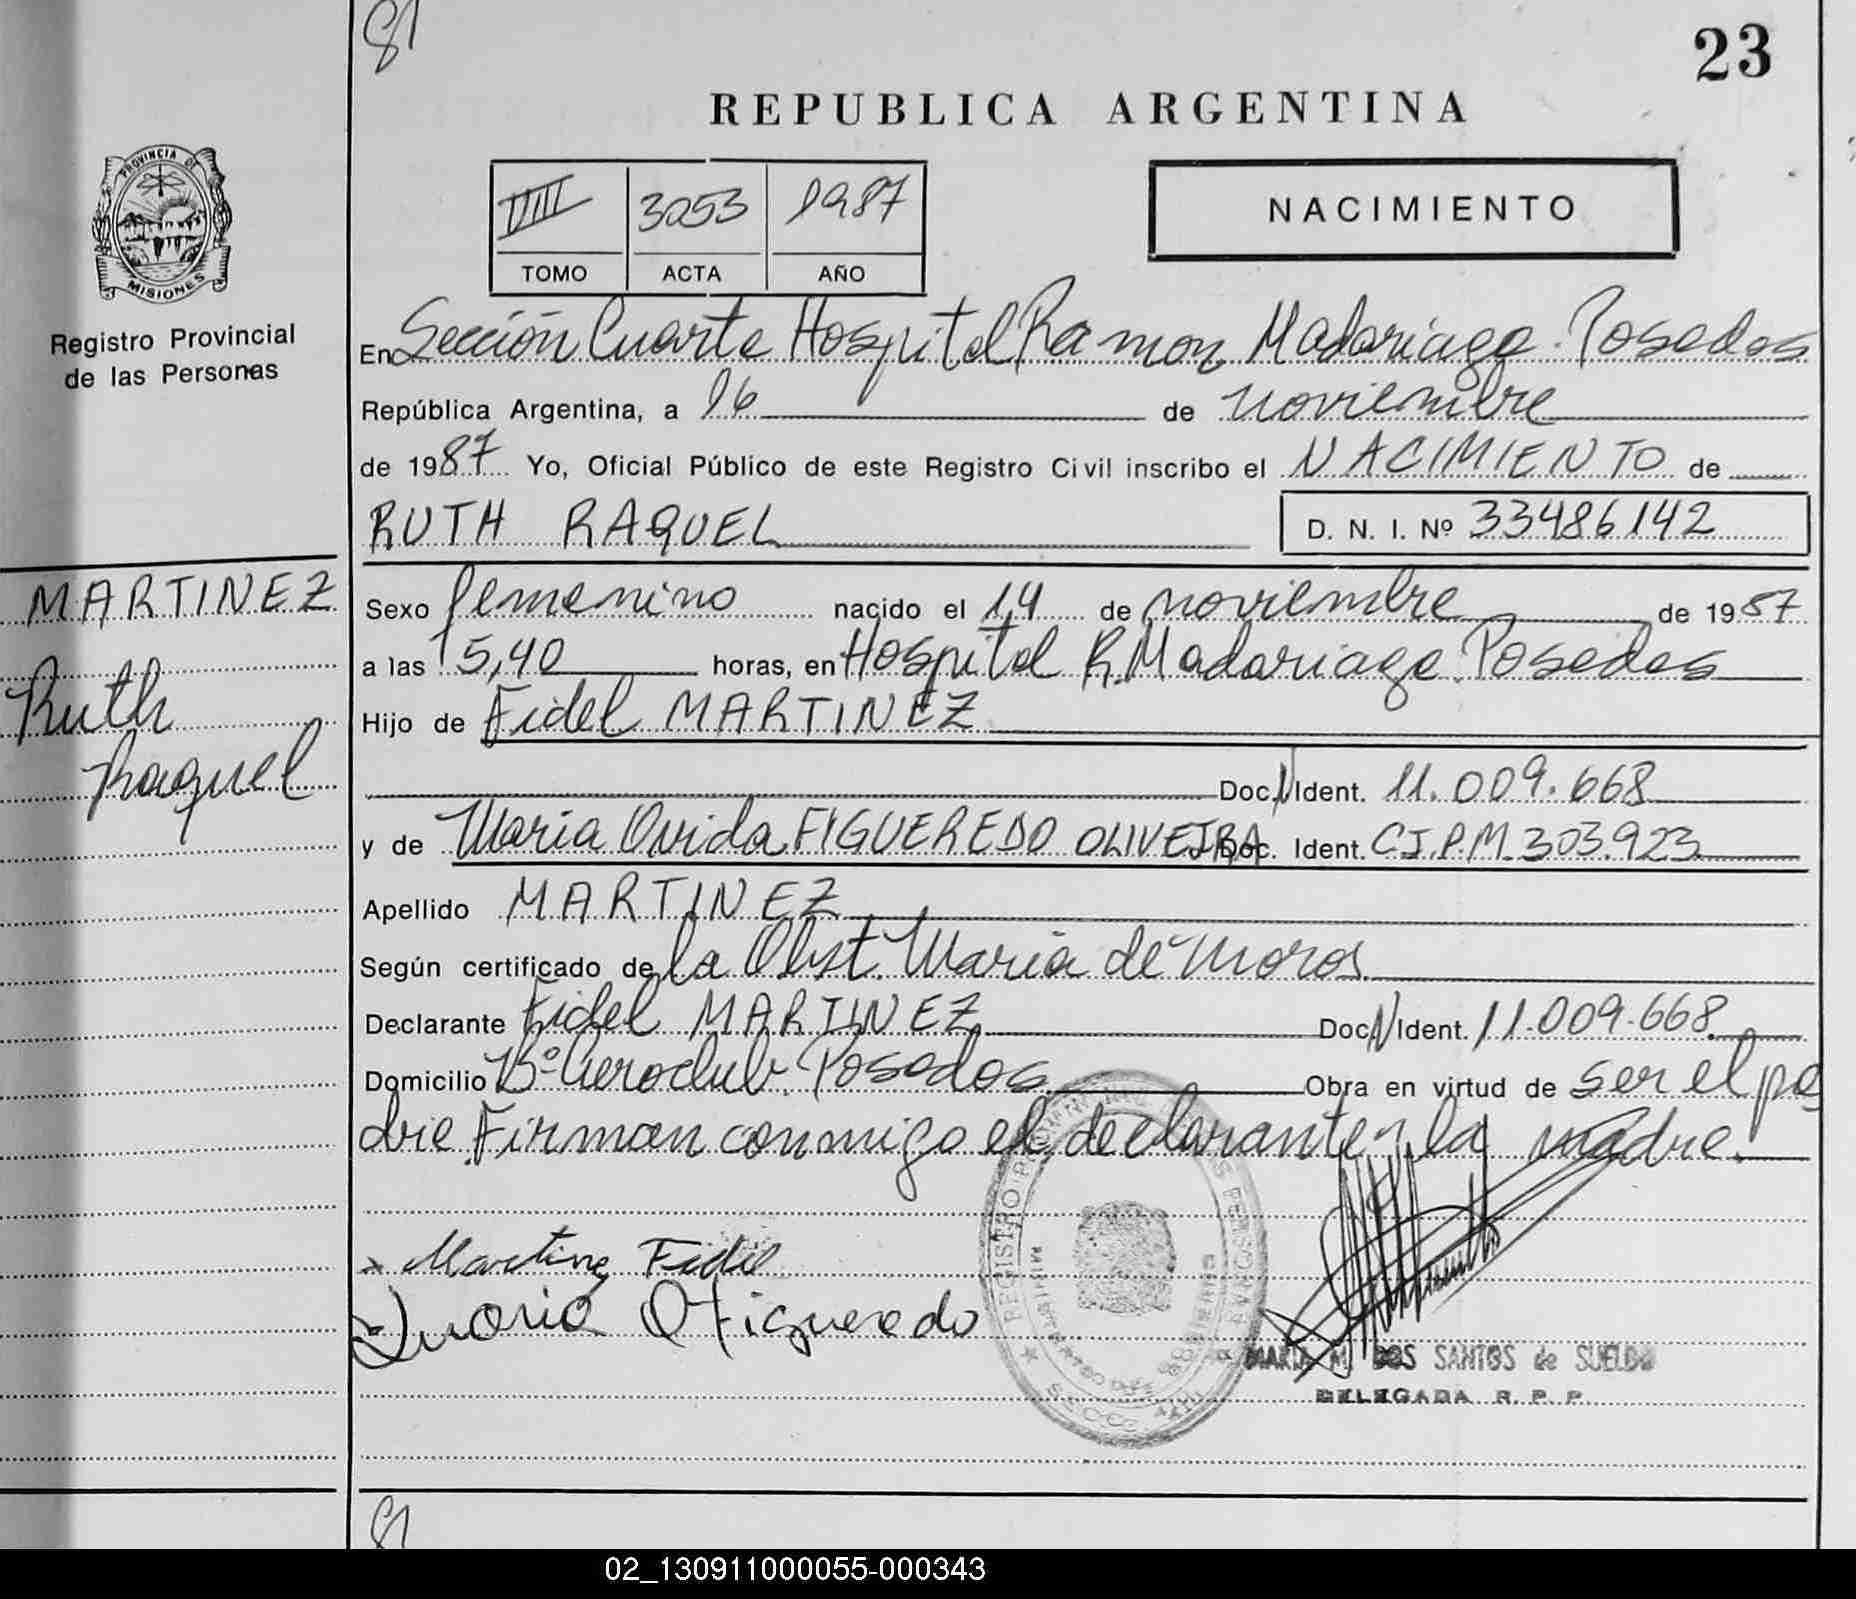 81
23
REPUBLICA ARGENTINA
PROVINCIA DE
MISIONES
Registro Provincial
de las Personas
VIII 3053 1987
TOMO ACTA AÑO
NACIMIENTO
En Sección Cuarta Hospital Ramon Madariaga. Posadas
República Argentina, a 16 de noviembre
de 1987 Yo, Oficial Público de este Registro Civil inscribo el NACIMIENTO de
RUTH RAQUEL D. N. I. Nº 33486142
MARTINEZ
Ruth
Raquel
Sexo femenino nacido el 14 de noviembre de 1987
a las 15,40 horas, en Hospital R. Madariaga. Posadas
Hijo de Fidel MARTINEZ
Doc. N Ident. 11.009.668
y de Maria Ovida FIGUEREDO OLIVEIRA Doc. Ident. C.I.P.M. 303.923
Apellido MARTINEZ
Según certificado de la Obst. Maria de Moros
Declarante Fidel MARTINEZ Doc. N Ident. 11.009.668
Domicilio Bº Aeroclub. Posadas Obra en virtud de ser el pa
dre. Firman conmigo el declarante y la madre.
x Martinez Fidel
x Maria O Figueredo
REGISTRO
MARIA M. DOS SANTOS de SUELDO
DELEGADA R. P. P.
81
02_130911000055-000343